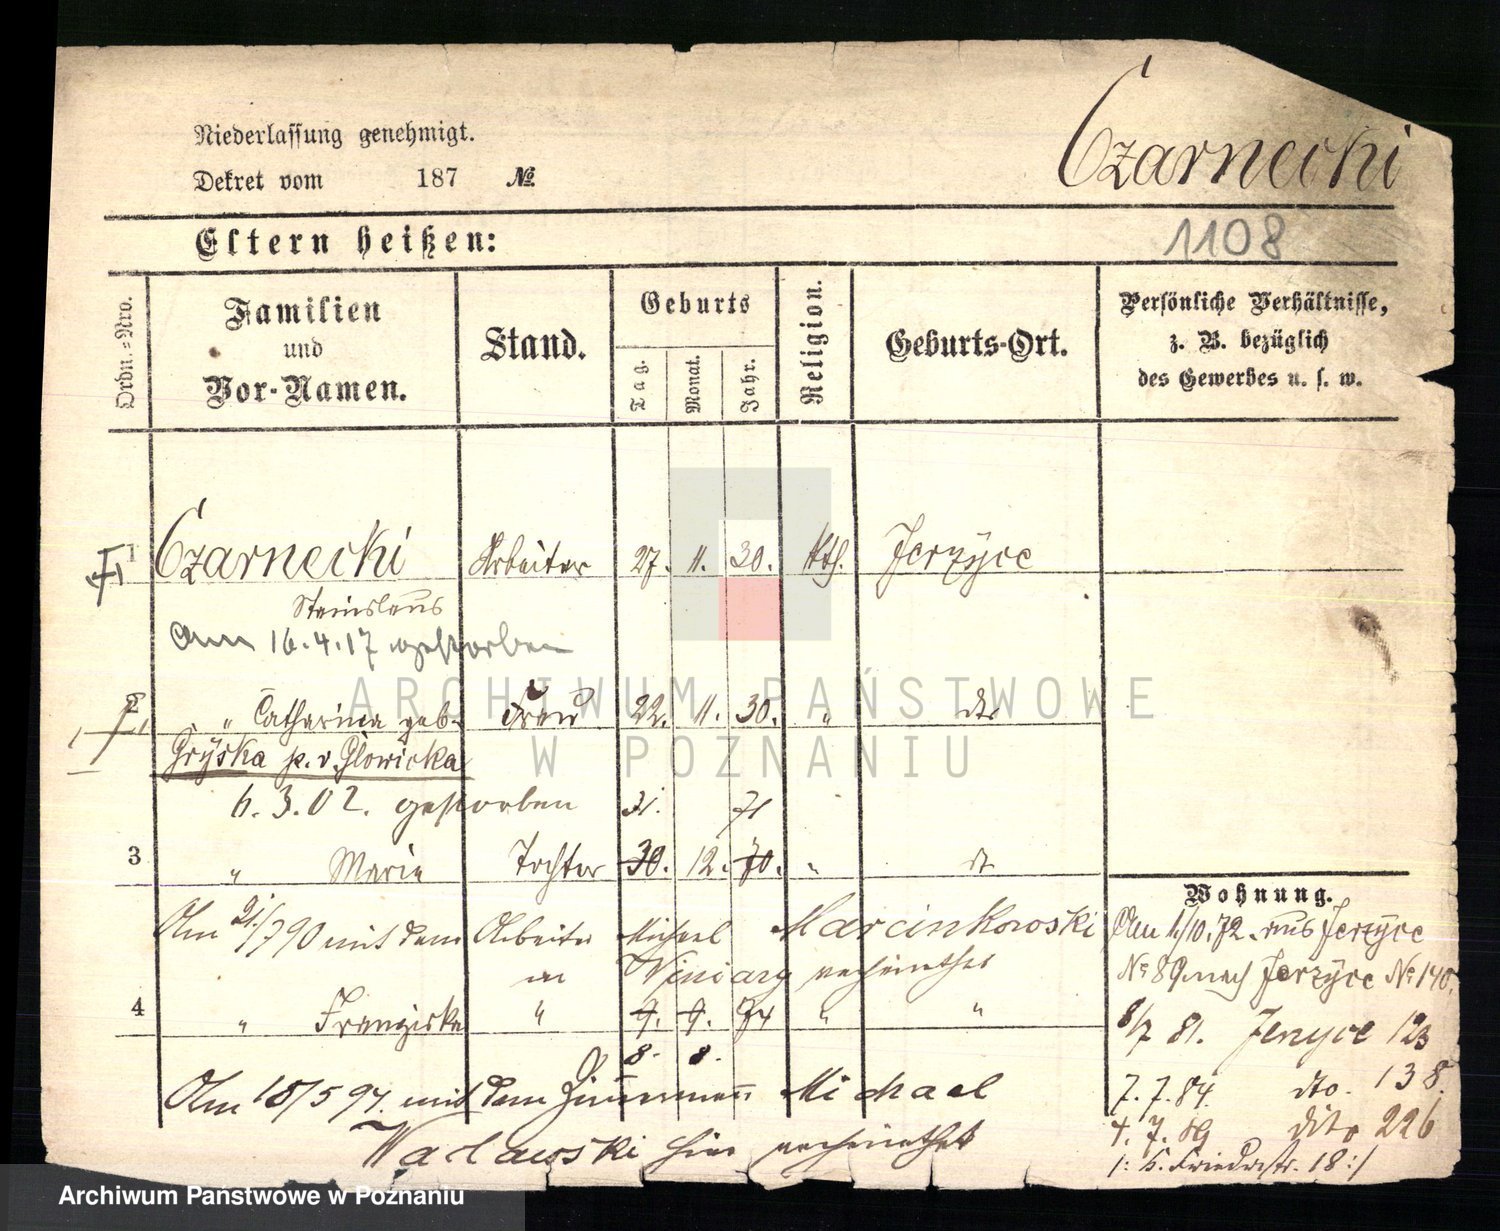 Niederlassung genehmigt.
Dekret vom 187 №
Czarnecki
1108
Eltern heißen:
Ordn.=Nro.
Familien und Vor-Namen.
Stand.
Geburts
Tag.
Monat.
Jahr.
Religion.
Geburts-Ort.
Persönliche Verhältnisse,
z. B. bezüglich
des Gewerbes u. s. w.
1 Czarnecki Arbeiter 27. 11. 30. kth. Jerzyce
Stanislaus
Am 16.4.17 gestorben
2 " Catharina geb. Frau 22. 11. 30. " dto
Gryska p. v. Glowicka
6.3.02. gestorben 31. 71
3 " Marie Tochter 30. 12. 70. " dt
Am 21/790 mit dem Arbeiter Michael Marcinkowski
in Winiary verheirathet
4 " Franziska " 9. 9. 74 " "
8. 8.
Am 18/5 97. mit dem Zimmermann Michael
Waclawski hier verheirathet
Wohnung.
Am 1/10.72. aus Jerzyce
No 89 nach Jerzyce No 140.
8/7 81. Jerzyce 123
7.7.84. dto. 138.
4.7.89 dito 226
ARCHIWUM PAŃSTWOWE
W POZNANIU
Archiwum Państwowe w Poznaniu